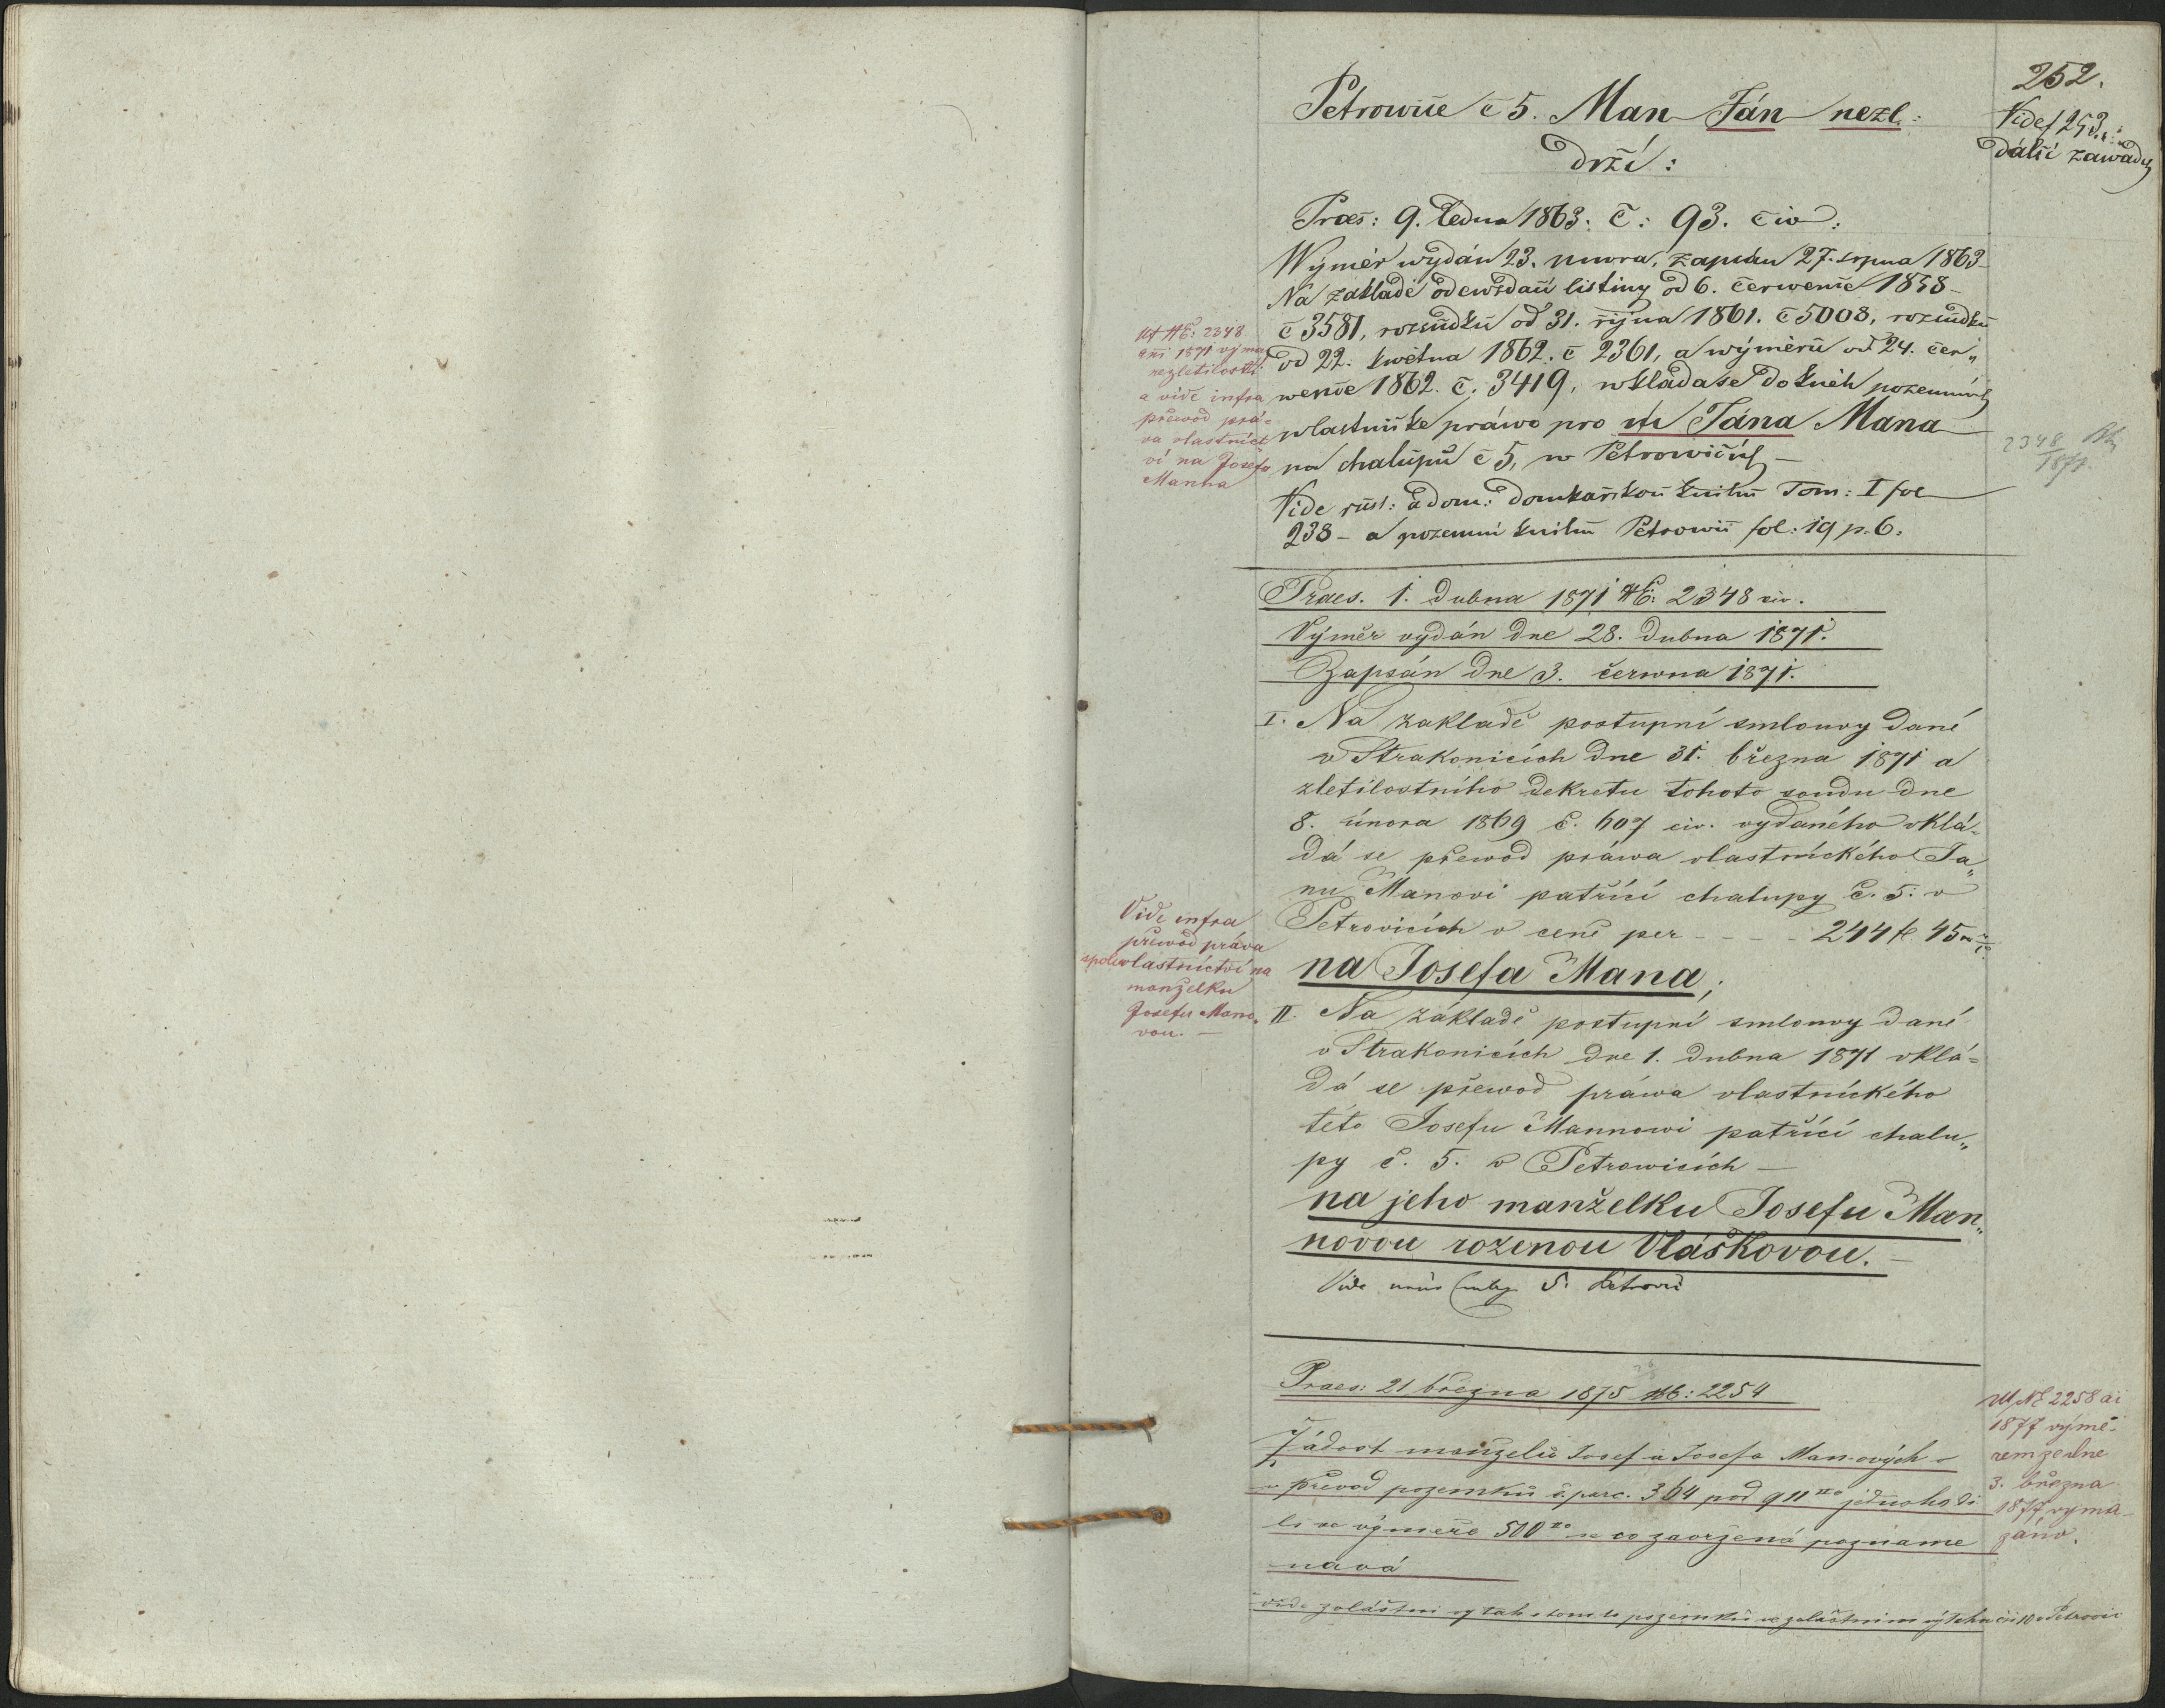 252.
Vide f 253.
Další zawady
Petrowic č 5. Man Ján nezl:
drží:
Praes: 9. Ledna 1863. č: 93. civ:
Wýměr wydán 23. unora, zapsán 27. srpna 1863
Na zakladě odewzdací listiny od 6. červenne 1858
č 3581, rozsudku od 31. října 1861. č 5008, rozsudku
od 22. května 1862. č 2361, a wýměru od 24. čer„
wence 1862. č. 3419, wkládá se do knéh pozemních
wlastnické práwo pro Jána Mana
na chalupu č 5, w Petrowicích –
Vide rust: a dom: domkařskou knihu Tom: I fol
238 – a pozemní knihu Petrowic fol: 19 p. 6.
Ut NE: 2348
ani 1871 výmaz
nezletilosti
a vide infra
převod prá-
va vlastnict
ví na Josefa
Manna
2348
1871
Praes. 1. Dubna 1871 NE: 2348 civ.
Výměr vydán dne 28. Dubna 1871.
Zapsán dne 3. června 1871.
I. Na zakladě postupní smlouvy dané
v Strakonicích dne 31. března 1871 a
zletilostního dekretu tohoto soudu dne
8. února 1869 č. 607 civ. vydaného vklá-
dá se přewod práwa vlastnického Ja„
nu Manovi patřící chalupy č. 5. v
Petrovicích v ceně per - - - - 244 fl 45
na Josefa Mana;
Vide infra
převod práva
spoluvlastnictví na
manželku
Josefu Mano„
vou. –
II. Na základě postupní smlouvy dané
v Strakonicích dne 1. dubna 1871 vklá-
dá se přewod práwa vlastnického
této Josefu Mannowi patřící chalu„
py č. 5. v Petrowicích –
na jeho manželku Josefu Man„
novou rozenou Vláškovou. –
Vide 5. Petrovic
Praes: 21 března 1875 NE: 2254
Žádost manželů Josef a Josefa Manových o
převod pozemku č. parc. 364 pod jednoho di
lí ve výměře 500 se co zavržená pozname
nává
vide zvláštní výtah o tomto pozemku ve zvláštním výtahu čís 10 v Petrovic
Ut NE 2258 ai
1877 výmě-
rem ze dne
3. března
1877 vyma-
záno.